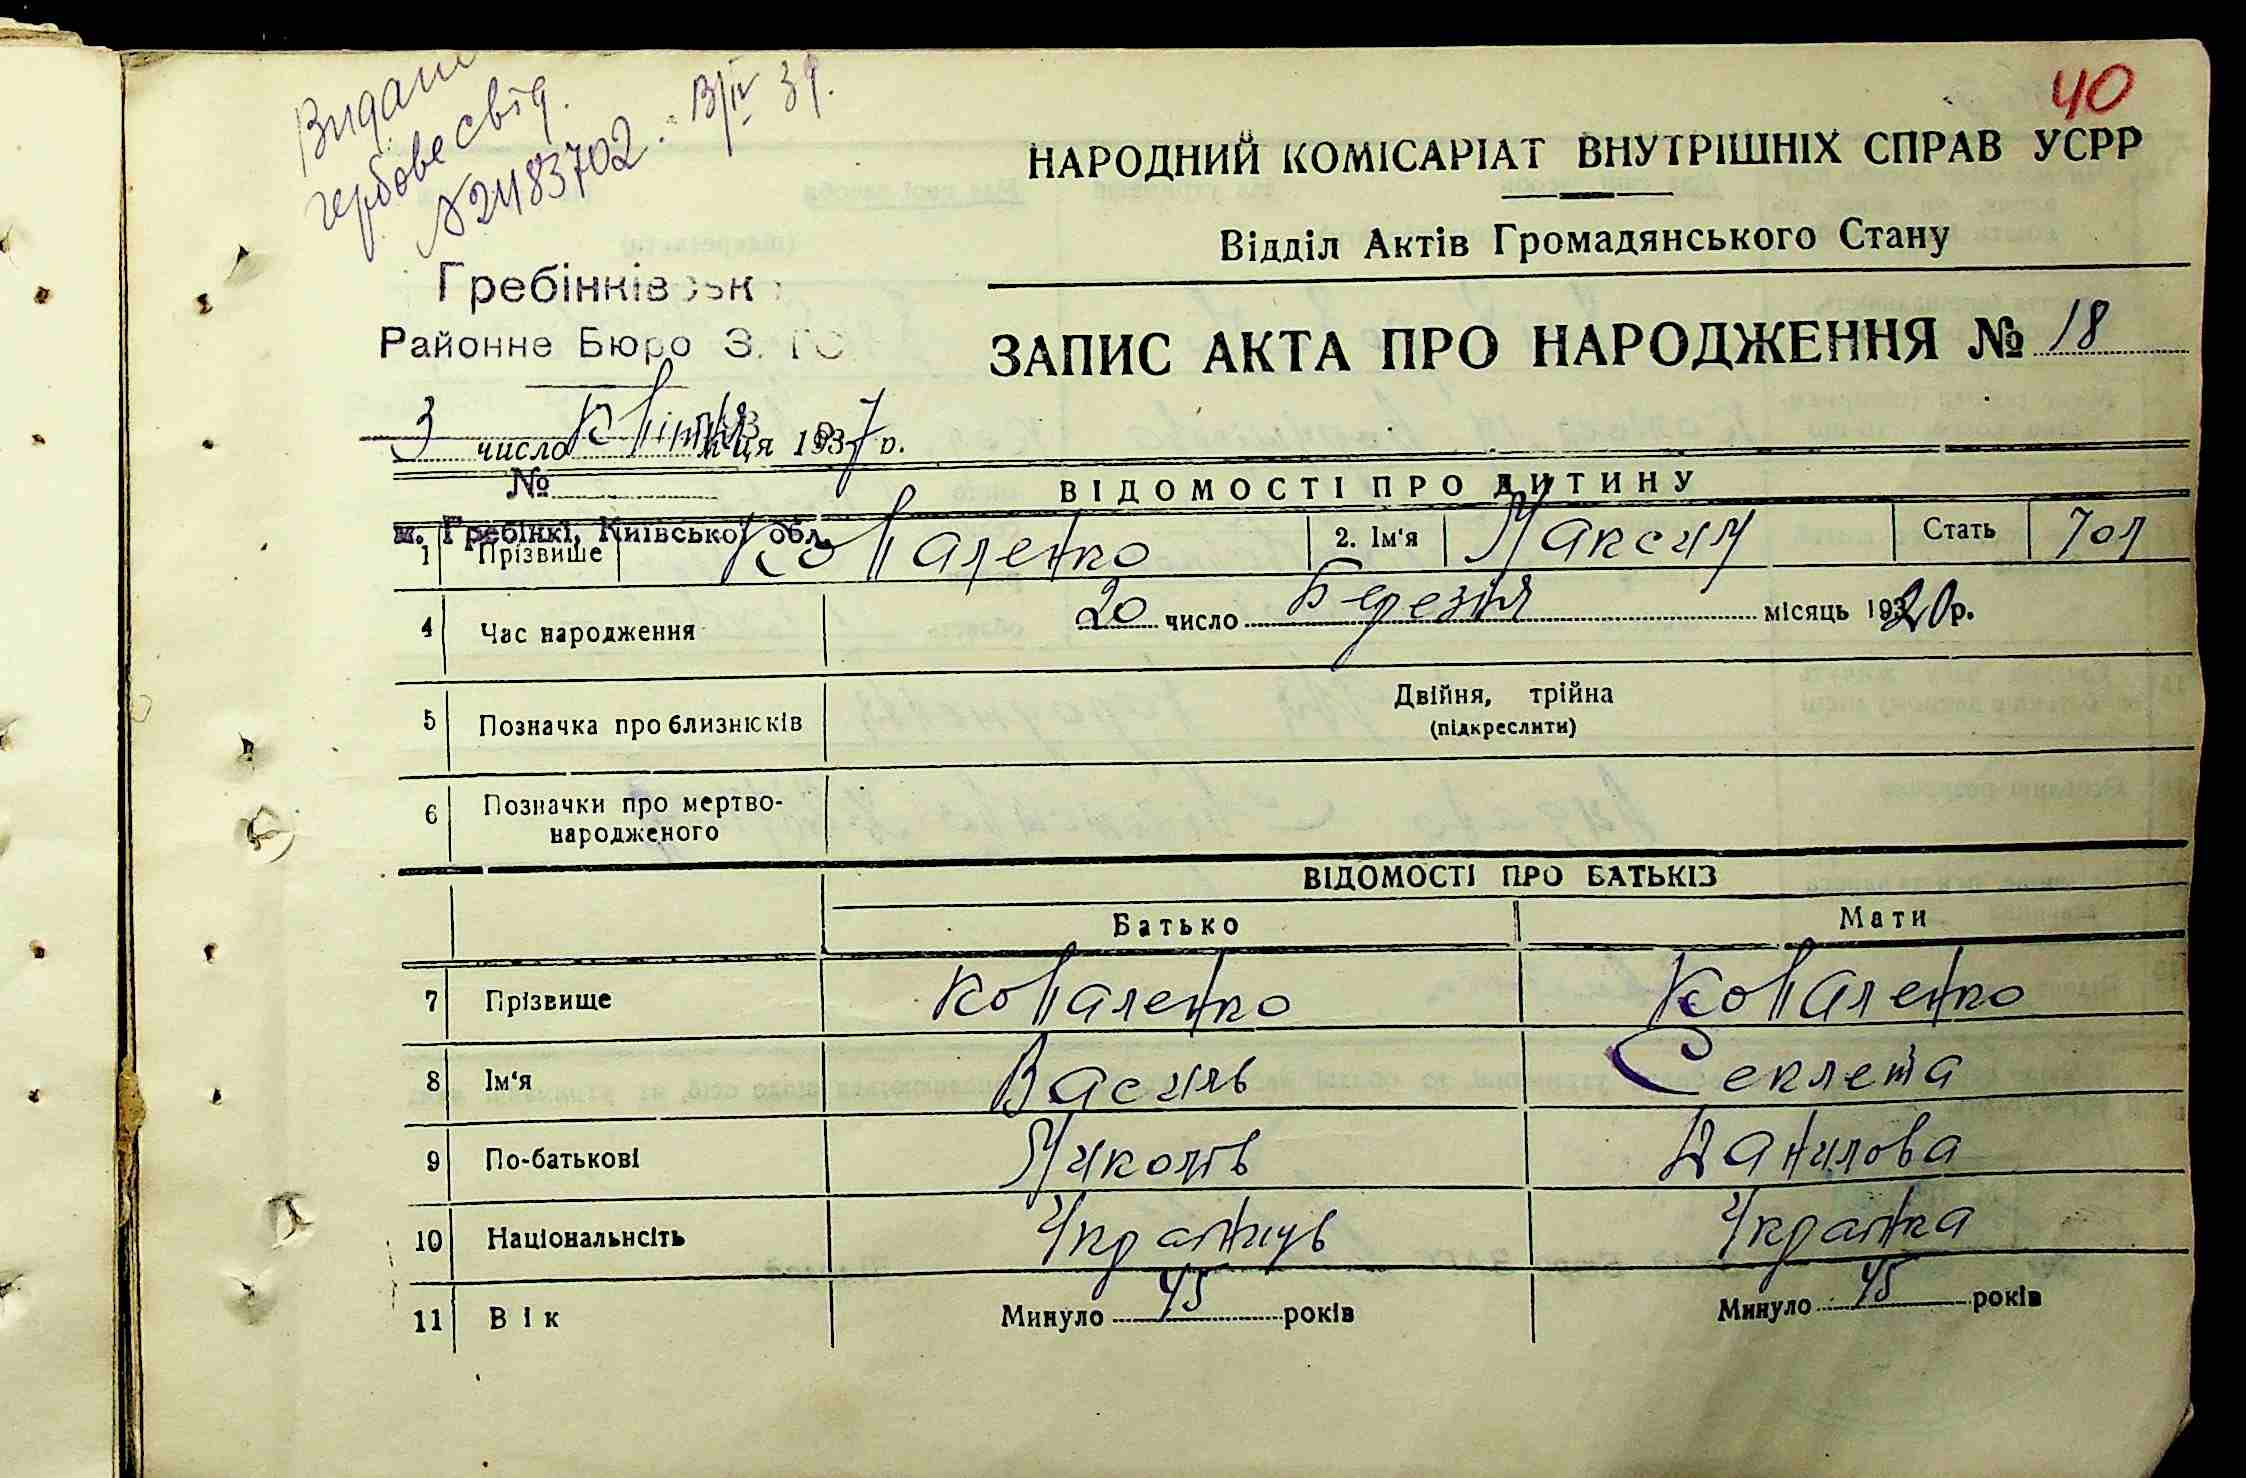 40
Видано
гербове свід.
№ 2483702.
НАРОДНИЙ КОМІСАРІАТ ВНУТРІШНІХ СПРАВ УСРР
Відділ Актів Громадянського Стану
Гребінківськ
Районне Бюро З. ГС
ЗАПИС АКТА ПРО НАРОДЖЕННЯ № 18
3 число Квітня м ця 1937 р.
№
ВІДОМОСТІ ПРО ДИТИНУ
м. Гребінкі, Київської обл.
1 Прізвище Коваленко 2. Ім'я Максим Стать чол
4 Час народження 20 число Березіля місяць 1920 р.
5 Позначка про близнюків Двійня, трійна
(підкреслити)
6 Позначки про мертво-
народженого
ВІДОМОСТІ ПРО БАТЬКІВ
Батько Мати
7 Прізвище Коваленко Коваленко
8 Ім'я Василь Секлета
9 По-батькові Миколів Данилова
10 Національнсіть Українець Українка
11 Вік Минуло 45 років Минуло 45 років